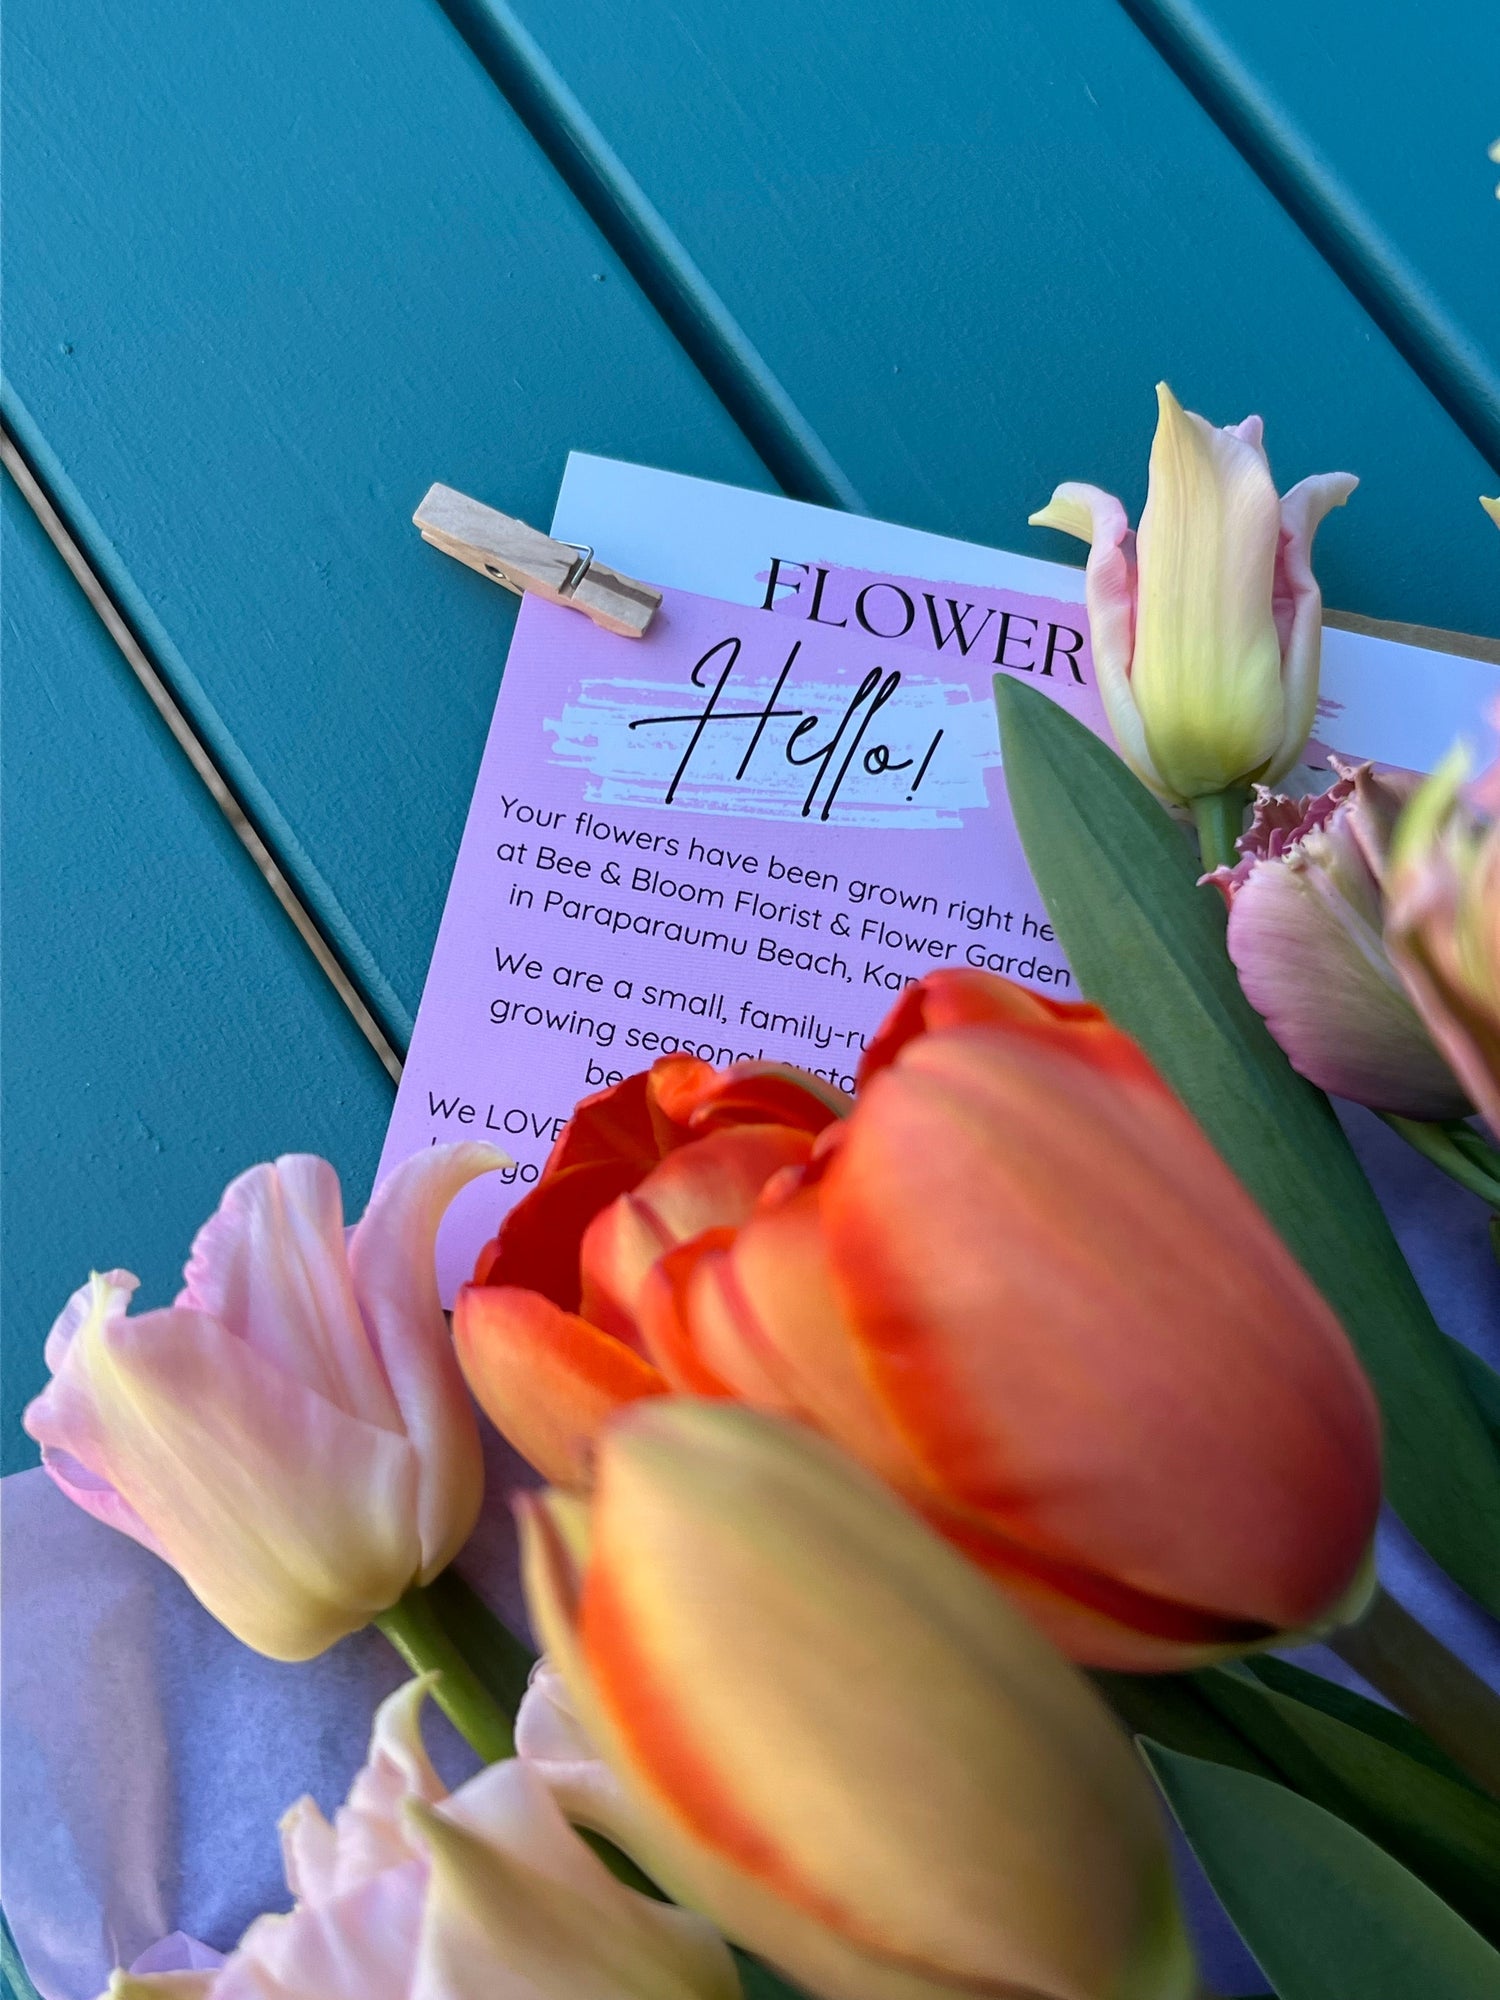 FLOWER
Hello!
Your flowers have been grown right he
at Bee & Bloom Florist & Flower Garden
in Paraparaumu Beach, Kap
We are a small, family-ru
growing seasonal
be
We LOVE
yo